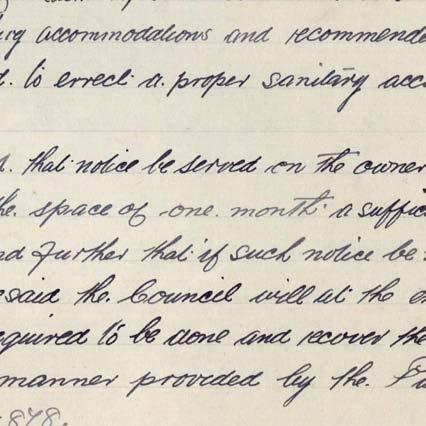 accommodations and recommende
d. to errect a proper sanitary acc
d. that notice be served on the owner
the. space of one. month. a suffic
nd further that if such notice be
esaid the. Council will at the e
equired to be done and recover the
manner provided by the. Pu
1878.